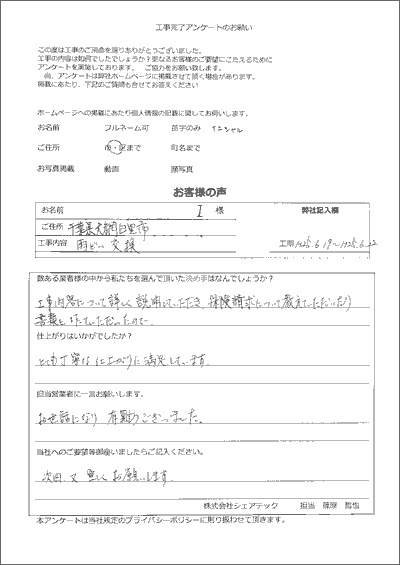 工事完了アンケートのお願い
この度は工事のご用命を賜りありがとうございました。
工事の内容は如何でしたでしょうか?更なるお客様のご要望にこたえるために
アンケートを実施しております。 ご協力をお願い致します。
尚、アンケートは弊社ホームページに掲載させて頂く場合があります。
掲載にあたり、下記のご質問も合せてお答えください。
ホームページへの掲載にあたり個人情報の記載に関してお伺いします。
お名前 フルネーム可 苗字のみ イニシャル
ご住所 市・区まで 町名まで
お写真掲載 動画 顔写真
お客様の声
お名前 I 様 弊社記入欄
ご住所 千葉県大網白里市
工事内容 雨どい 交換 工期 H25.6.19〜H25.6.22
数ある業者様の中から私たちを選んで頂いた決め事はなんでしょうか?
工事内容について詳しく説明していただき、保険請求について教えていただいたり
書類を作っていただいたので。
仕上がりはいかがでしたか?
とても丁寧な仕上がりに満足しています。
担当営業者に一言お願いします。
お世話になり有難うございました。
当社へのご要望等御座いましたらご記入ください。
次回、又 宜しくお願いします。
株式会社シェアテック 担当 篠原
本アンケートは当社規定のプライバシーポリシーに則り扱わせて頂きます。